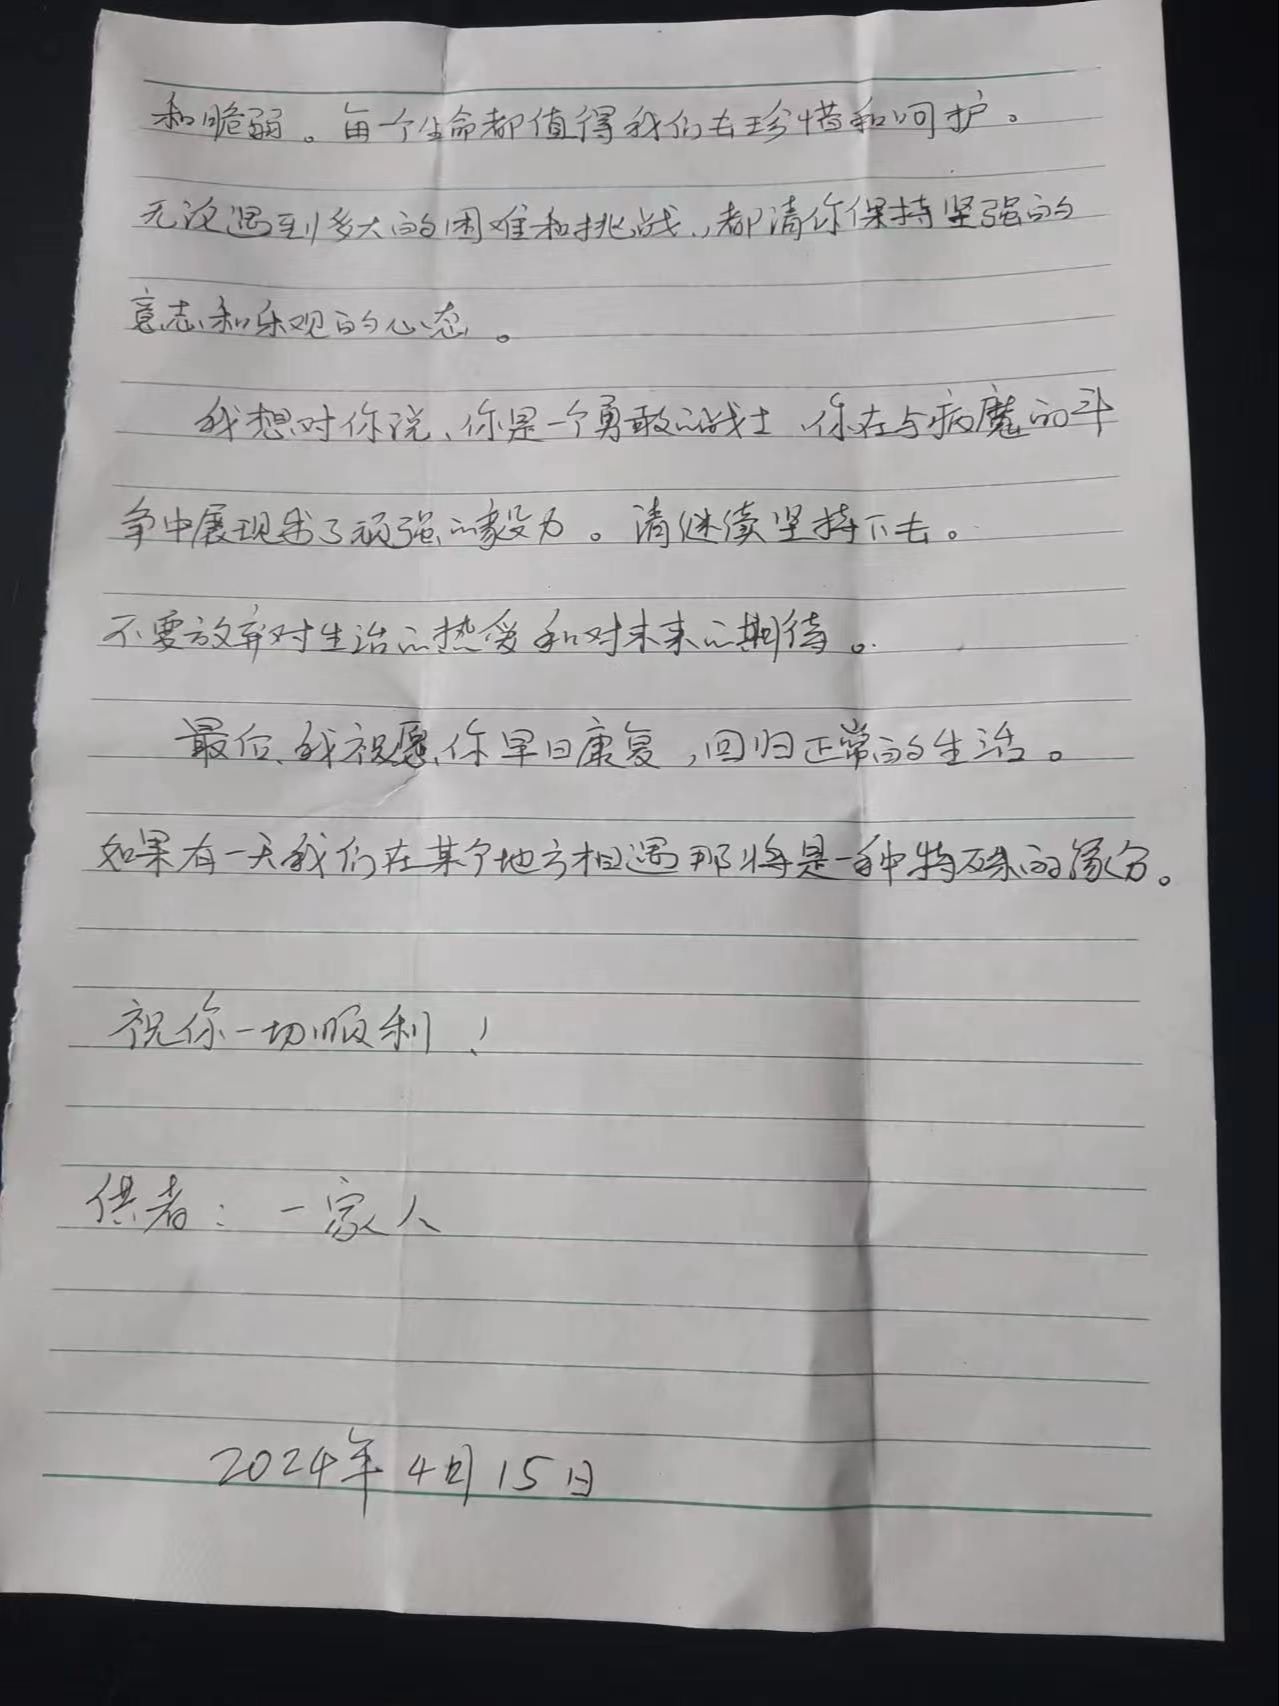 和脆弱。每个生命都值得我们去珍惜和呵护。
无论遇到多大的困难和挑战,都请你保持坚强的
意志和乐观的心态。
我想对你说、你是一个勇敢的战士、你在与病魔的斗
争中展现出了顽强的毅力。请继续坚持下去。
不要放弃对生活的热爱和对未来的期待。
最后、我祝愿你早日康复,回归正常的生活。
如果有一天我们在某个地方相遇那将是一种特殊的缘分。
祝你一切顺利!
供者:一家人
2024年4月15日